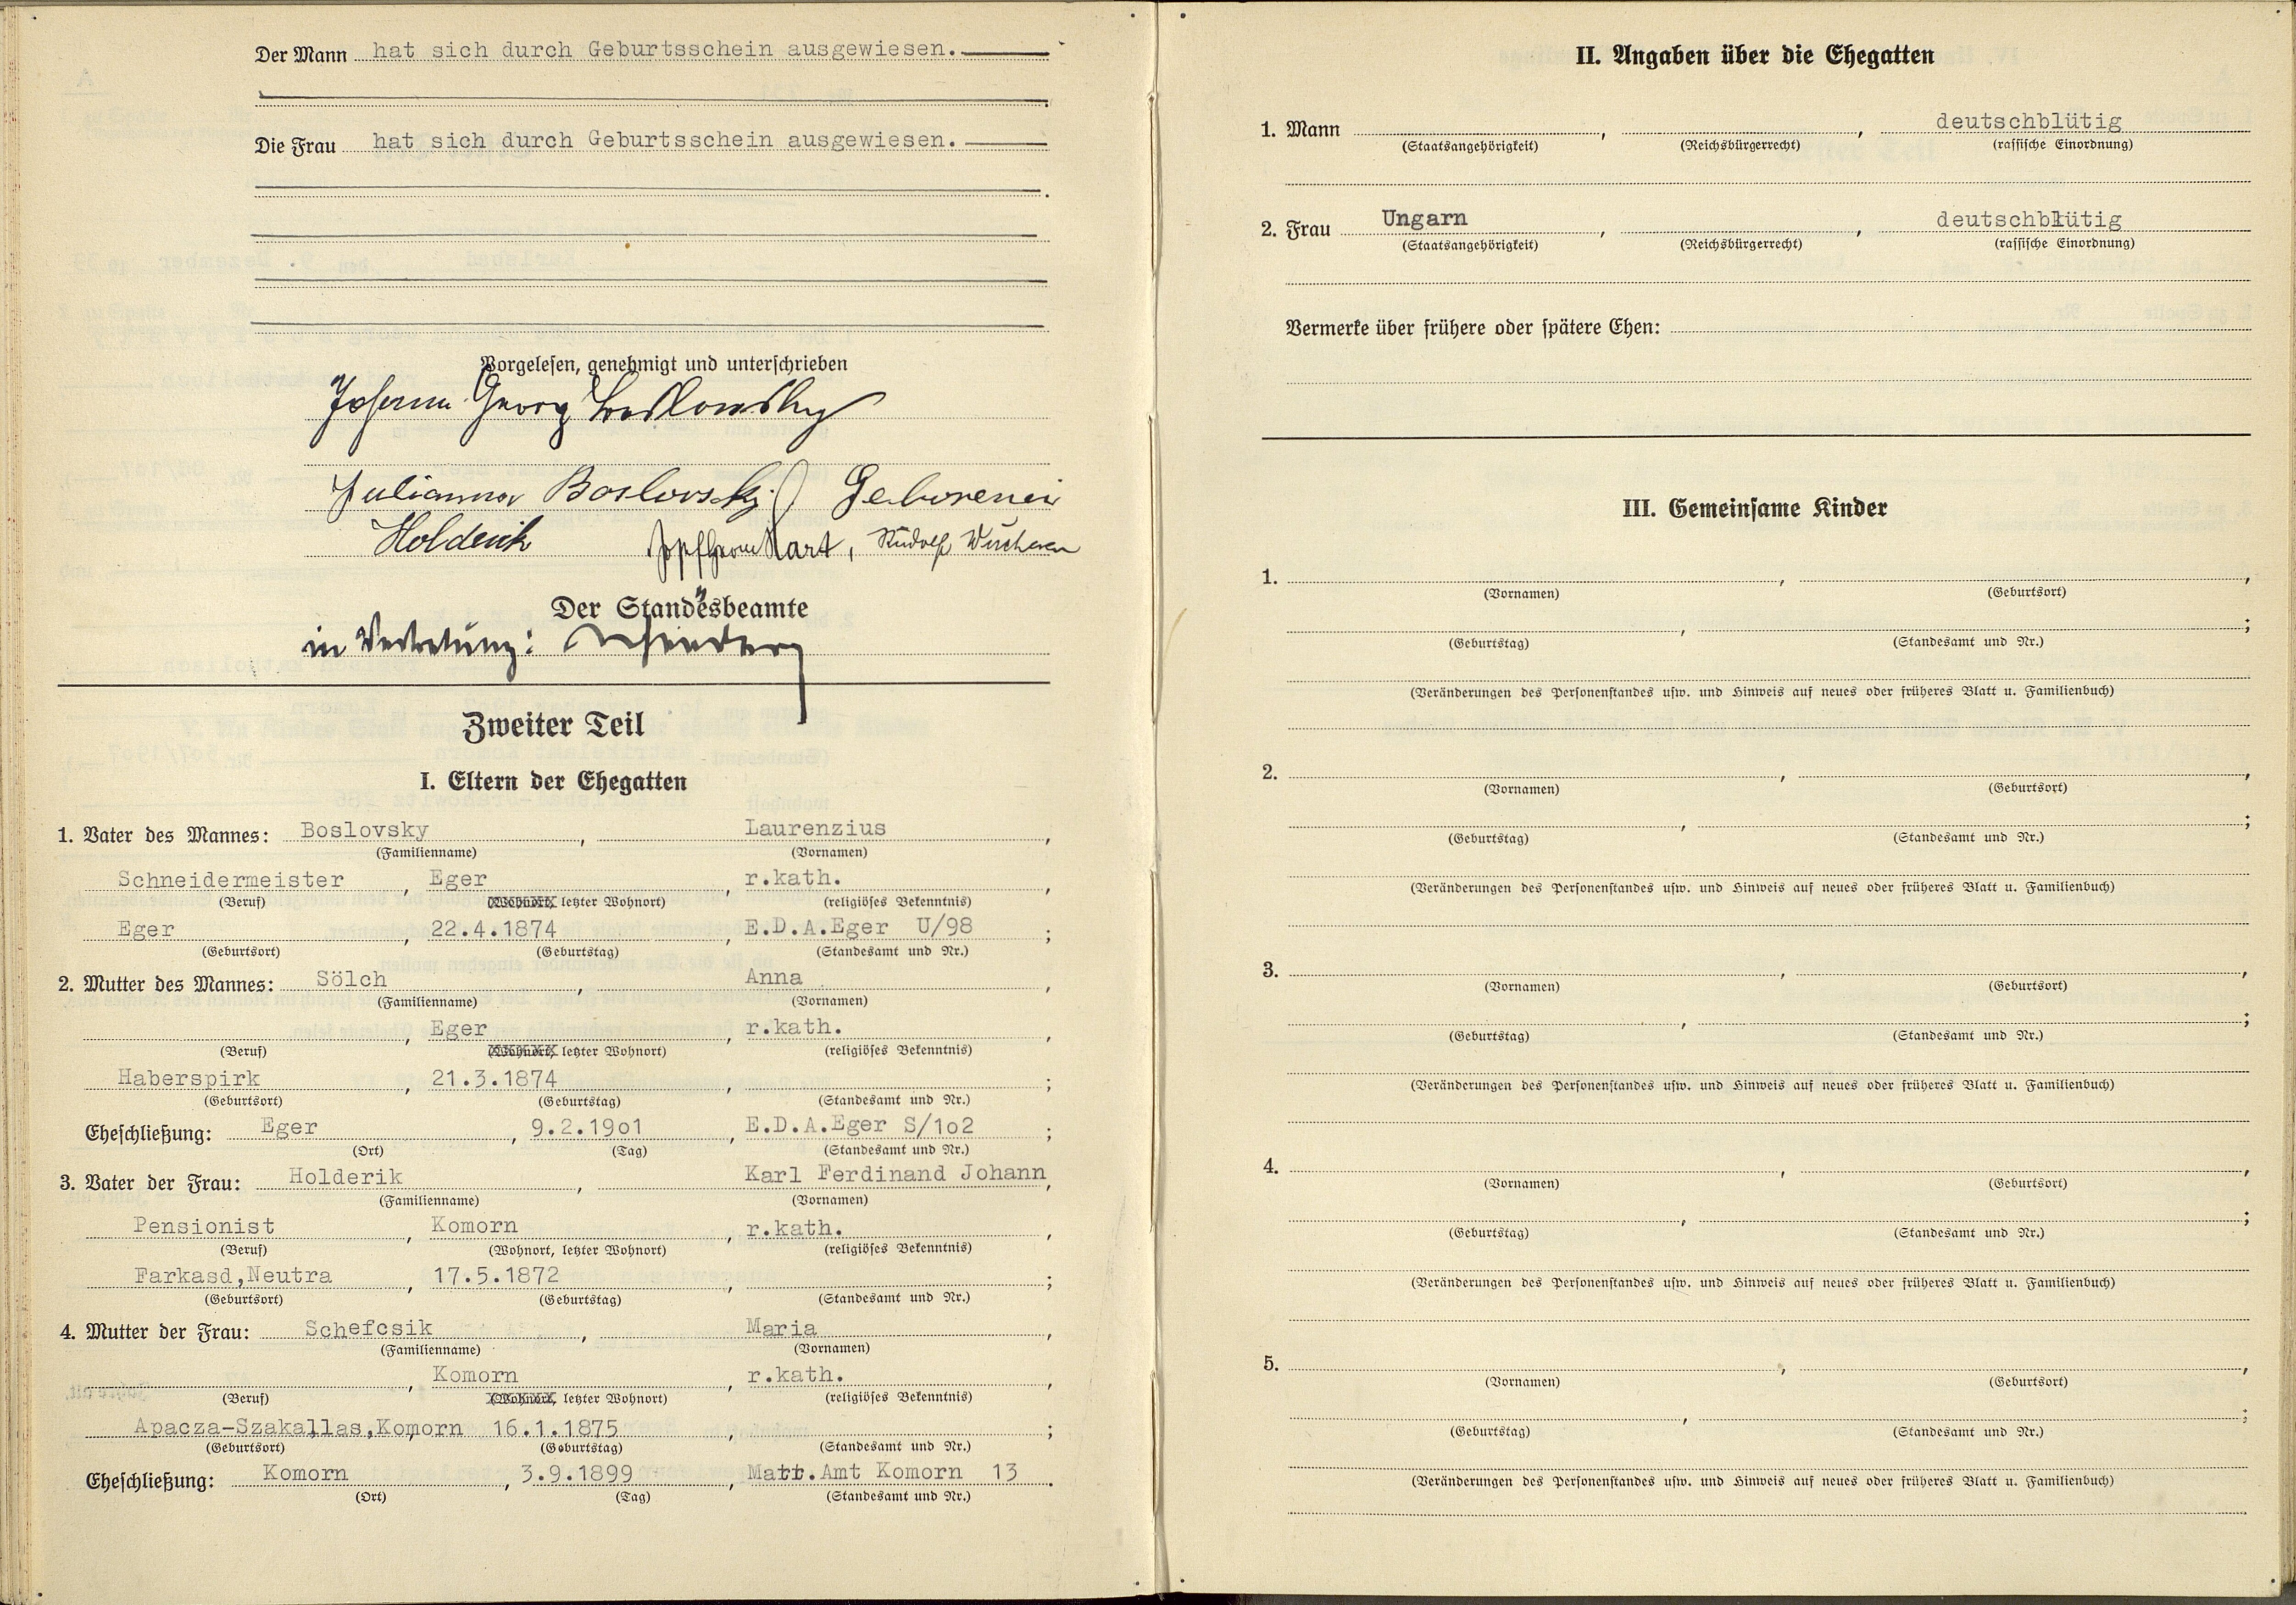 Der Mann hat sich durch Geburtsschein ausgewiesen.
Die Frau hat sich durch Geburtsschein ausgewiesen.
Vorgelesen, genehmigt und unterschrieben
Johann Georg Boslowsky
Julianna Boslovsky Geborene
Holderik Kart, Rudolf
Der Standesbeamte
in Vertretung:
Zweiter Teil
I. Eltern der Ehegatten
1. Vater des Mannes: Boslovsky, Laurenzius,
(Familienname) (Vornamen)
Schneidermeister, Eger, r.kath.,
(Beruf) (Wohnort, letzter Wohnort) (religiöses Bekenntnis)
Eger, 22.4.1874, E.D.A.Eger U/98;
(Geburtsort) (Geburtstag) (Standesamt und Nr.)
2. Mutter des Mannes: Sölch, Anna,
(Familienname) (Vornamen)
, Eger, r.kath.,
(Beruf) (Wohnort, letzter Wohnort) (religiöses Bekenntnis)
Haberspirk, 21.3.1874, ;
(Geburtsort) (Geburtstag) (Standesamt und Nr.)
Eheschließung: Eger, 9.2.19o1, E.D.A.Eger S/1o2;
(Ort) (Tag) (Standesamt und Nr.)
3. Vater der Frau: Holderik, Karl Ferdinand Johann,
(Familienname) (Vornamen)
Pensionist, Komorn, r.kath.,
(Beruf) (Wohnort, letzter Wohnort) (religiöses Bekenntnis)
Farkasd,Neutra, 17.5.1872, ;
(Geburtsort) (Geburtstag) (Standesamt und Nr.)
4. Mutter der Frau: Schefcsik, Maria,
(Familienname) (Vornamen)
, Komorn, r.kath.,
(Beruf) (Wohnort, letzter Wohnort) (religiöses Bekenntnis)
Apacza-Szakallas,Komorn 16.1.1875, ;
(Geburtsort) (Geburtstag) (Standesamt und Nr.)
Eheschließung: Komorn, 3.9.1899, Matr.Amt Komorn 13.
(Ort) (Tag) (Standesamt und Nr.)
II. Angaben über die Ehegatten
1. Mann , , deutschblütig
(Staatsangehörigkeit) (Reichsbürgerrecht) (rassische Einordnung)
2. Frau Ungarn, , deutschblütig
(Staatsangehörigkeit) (Reichsbürgerrecht) (rassische Einordnung)
Vermerke über frühere oder spätere Ehen:
III. Gemeinsame Kinder
1. , ,
(Vornamen) (Geburtsort)
, ;
(Geburtstag) (Standesamt und Nr.)
(Veränderungen des Personenstandes usw. und Hinweis auf neues oder früheres Blatt u. Familienbuch)
2. , ,
(Vornamen) (Geburtsort)
, ;
(Geburtstag) (Standesamt und Nr.)
(Veränderungen des Personenstandes usw. und Hinweis auf neues oder früheres Blatt u. Familienbuch)
3. , ,
(Vornamen) (Geburtsort)
, ;
(Geburtstag) (Standesamt und Nr.)
(Veränderungen des Personenstandes usw. und Hinweis auf neues oder früheres Blatt u. Familienbuch)
4. , ,
(Vornamen) (Geburtsort)
, ;
(Geburtstag) (Standesamt und Nr.)
(Veränderungen des Personenstandes usw. und Hinweis auf neues oder früheres Blatt u. Familienbuch)
5. , ,
(Vornamen) (Geburtsort)
, ;
(Geburtstag) (Standesamt und Nr.)
(Veränderungen des Personenstandes usw. und Hinweis auf neues oder früheres Blatt u. Familienbuch)